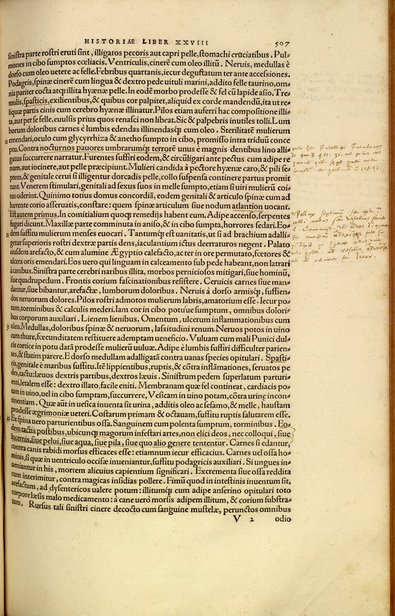 HISTORIAE LIBER XXVIII 507
sinistra parte rostri eruti sint, illigatos pecoris aut capri pelle, stomachi cruciatibus. Pul-
mones in cibo sumptos cœliacis. Ventriculis, cinerē cum oleo illitū. Neruis, medullas è
dorso cum oleo uetere ac felle. Febribus quartanis, iecur degustatum ter ante accessiones.
Podagris, spinæ cinerē cum lingua & dextro pede uituli marini, addito felle taurino, om-
nia pariter cocta atq; illita hyænæ pelle. In eodē morbo prodesse & fel cū lapide asio. Tre-
mulis, spasticis, exilientibus, & quibus cor palpitet, aliquid ex corde mandendū, ita ut re-
liquæ partis cinis cum cerebro hyænæ illinatur. Pilos etiam auferri hac compositione illi-
ta, aut per se felle, euulsis prius quos renasci non libeat. Sic & palpebris inutiles tolli. Lum
borum doloribus carnes è lumbis edendas illinendasq; cum oleo. Sterilitatē mulierum
emendari, oculo cum glycyrrhiza & anetho sumpto in cibo, promisso intra triduū conce-
ptu. Contra nocturnos pauores umbrarumq; terrorē unus è magnis dentibus lino alli-
gatus succurrere narratur. Furentes suffiri eodem, & circūligari ante pectus cum adipe re
num, aut iocinere, aut pelle præcipiunt. Mulieri candida à pectore hyænæ caro, & pili se-
ptem, & genitale cerui si illigentur dorcadis pelle, collo suspensa continere partus promit
tunt. Venerem stimulari, genitali ad sexus suos in melle sumpto, etiam si uiri mulierū coi-
tus oderint. Quinimo totius domus concordiā, eodem genitali & articulo spinæ cum ad
hærente corio asseruatis, constare: hunc spinæ articulum siue nodum atlantion uocant.
Est autem primus. In comitialium quoq; remedijs habent eum. Adipe accenso, serpentes
fugari dicunt. Maxillæ parte comminuta in aniso, & in cibo sumpta, horrores sedari. Eo-
dem suffitu mulierum menses euocari. Tantumq; est uanitatis, ut si ad brachium alli-
getur superioris rostri dextræ partis dens, iaculantium ictus deerraturos negent. Palato
eiusdem arefacto, & cum alumine Ægyptio calefacto, ac ter in ore permutato, fœtores &
ulcera oris emendari. Hos uero qui linguam in calceamento sub pede habeant, non latrari
à canibus. Sinistra parte cerebri naribus illita, morbos perniciosos mitigari, siue hominū,
siue quadrupedum. Frontis corium fascinationibus resistere. Ceruicis carnes siue man-
dantur, siue bibantur, arefactæ, lumborum doloribus. Neruis à dorso armisq;, suffien-
dos neruorum dolores. Pilos rostri admotos mulierum labris, amatorium esse. Iecur po-
tum, torminibus & calculis mederi. Iam cor in cibo potuúe sumptum, omnibus dolori-
bus corporum auxiliari. Lienem lienibus. Omentum, ulcerum inflammationibus cum
oleo. Medullas, doloribus spinæ & neruorum, lassitudini renum. Neruos potos in uino
cum thure, fœcunditatem restituere ademptam beneficio. Vuluam cum mali Punici dul-
cis cortice in potu datā prodesse mulierū uuluæ. Adipe è lumbis suffiri difficulter parien-
tes, & statim parere. E dorso medullam adalligatā contra uanas species opitulari. Spasti-
cis, genitale è maribus suffitu. Itē lippientibus, ruptis, & cōtra inflammationes, seruatos pe
des, tactu: læuos dextris partibus, dextros læuis. Sinistrum pedem superlatum parturi-
enti, letalem esse: dextro illato, facile eniti. Membranam quæ fel continent, cardiacis po-
tam in uino, uel in cibo sumptam, succurrere. Vesicam in uino potam, cōtra urinę incon-
tinentiam. Quæ aūt in uesica inuenta sit urina, additis oleo ac sesamo, & melle, haustam
prodesse ægrimoniæ ueteri. Costarum primam & octauam, suffitu ruptis salutarem esse.
Ex spina uero parturientibus ossa. Sanguinem cum polenta sumptum, torminibus. Eo-
dem tactis postibus, ubicunq; magorum infestari artes, non elici deos, nec colloqui, siue
lucernis, siue pelui, siue aqua, siue pila, siue quo alio genere tententur. Carnes si edantur,
contra canis rabidi morsus efficaces esse: etiamnum iecur efficacius. Carnes uel ossa ho-
minis, si quæ in uentriculo occisæ inueniantur, suffitu podagricis auxiliari. Si ungues in
ueniantur in his, mortem alicuius capientium significari. Excrementa siue ossa reddita
cum interimitur, contra magicas insidias pollere. Fimū quod in intestinis inuentum sit,
arefactum, ad dysentericos ualere potum: illitumq; cum adipe anserino opitulari toto
corpore læsis malo medicamento: à cane uero morsis adipem illitum, & corium substra-
tum. Rursus tali sinistri cinere decocto cum sanguine mustelæ, perunctos omnibus
V 2 odio